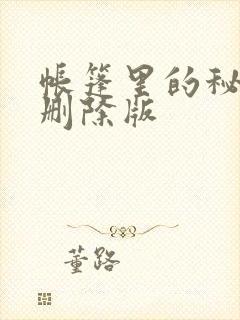 帐篷里的秘
删除版
董路